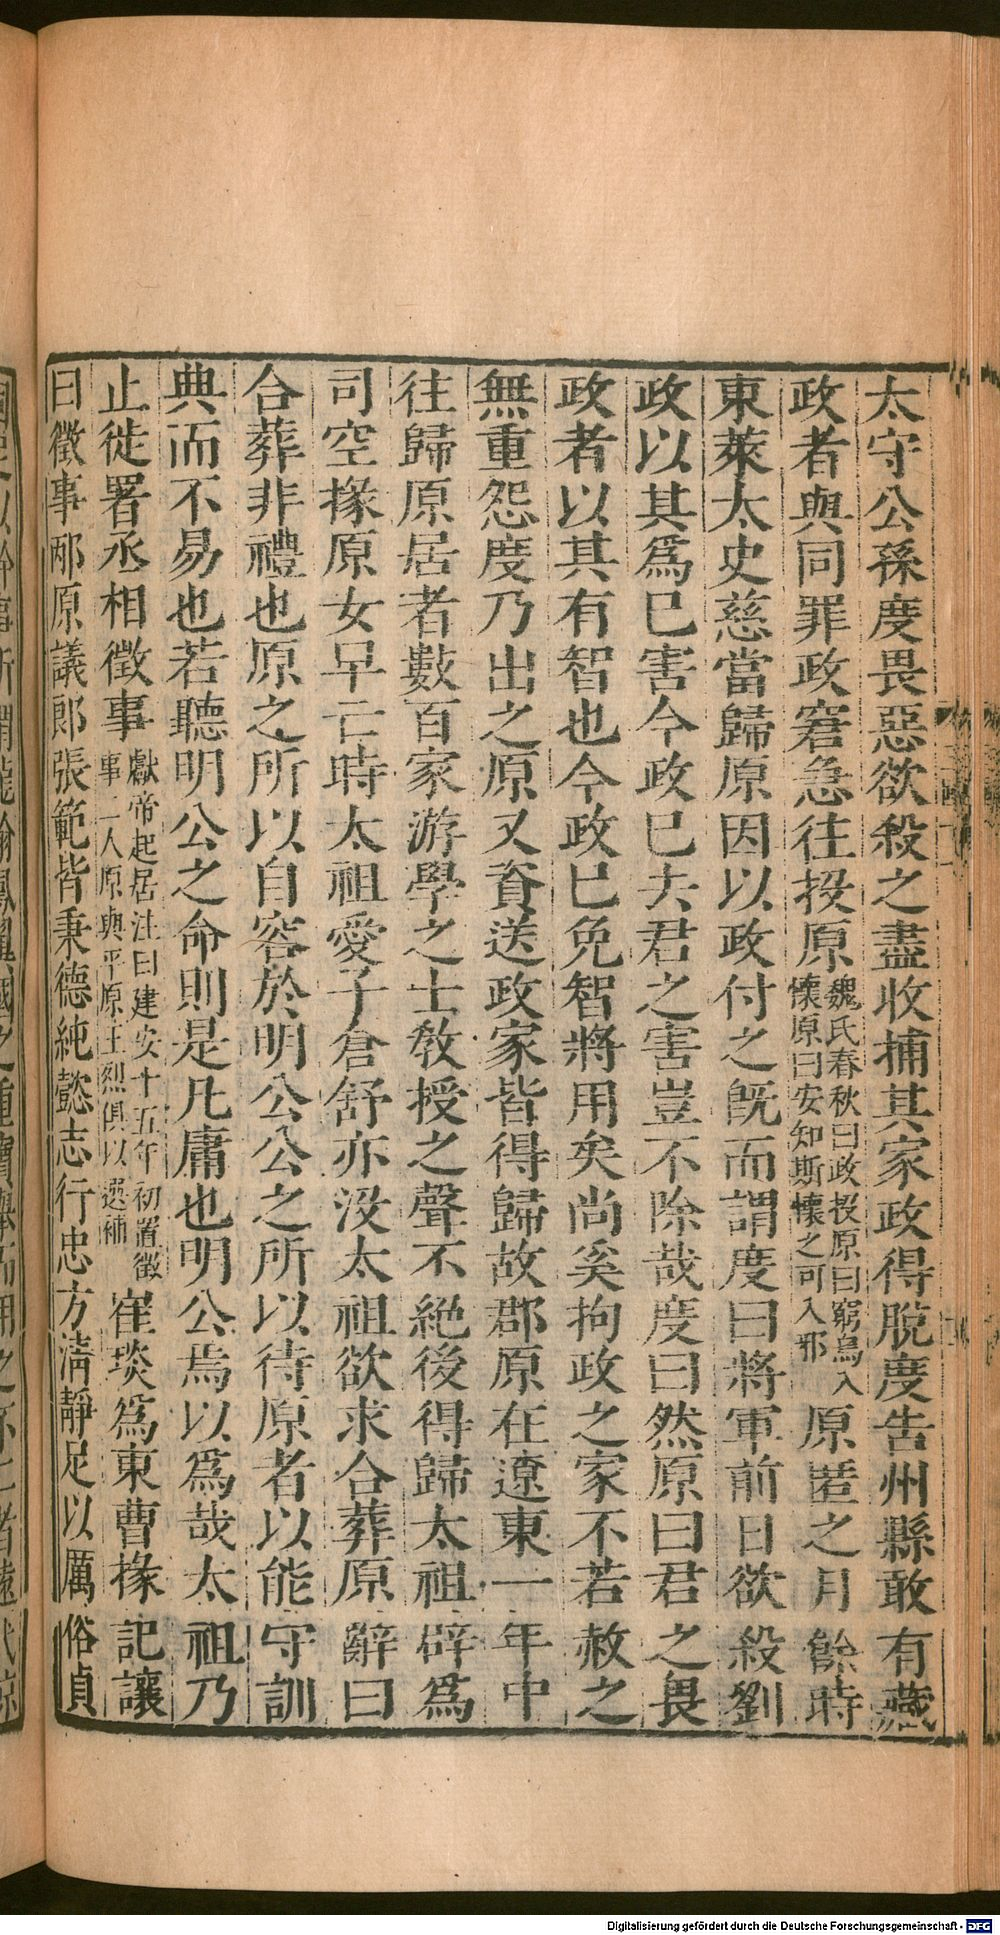 太守公孫度畏惡欲殺之盡收捕其家政得脫度告州縣敢有藏
政者與同罪政窘急往投原魏氏春秋曰政投原曰窮鳥入懷原曰安知斯懷之可入邪原匿之月餘時
東萊太史慈當歸原因以政付之旣而謂度曰將軍前日欲殺劉
政以其爲已害今政已去君之害豈不除哉度曰然原曰君之畏
政者以其有智也今政已免智將用矣尚奚拘政之家不若赦之
無重怨度乃出之原又資送政家皆得歸故郡原在遼東一年中
往歸原居者數百家游學之士敎授之聲不絕後得歸太祖辟爲
司空掾原女早亡時太祖愛子倉舒亦沒太祖欲求合葬原辭曰
合葬非禮也原之所以自容於明公公之所以待原者以能守訓
典而不易也若聽明公之命則是凡庸也明公焉以爲哉太祖乃
止徙署丞相徵事獻帝起居注曰建安十五年初置徵事二人原與平原王烈俱以選補崔琰爲東曹掾記讓
曰徵事邴原議郞張範皆秉德純懿志行忠方淸靜足以厲俗貞
Digitalisierung gefördert durch die Deutsche Forschungsgemeinschaft - DFG